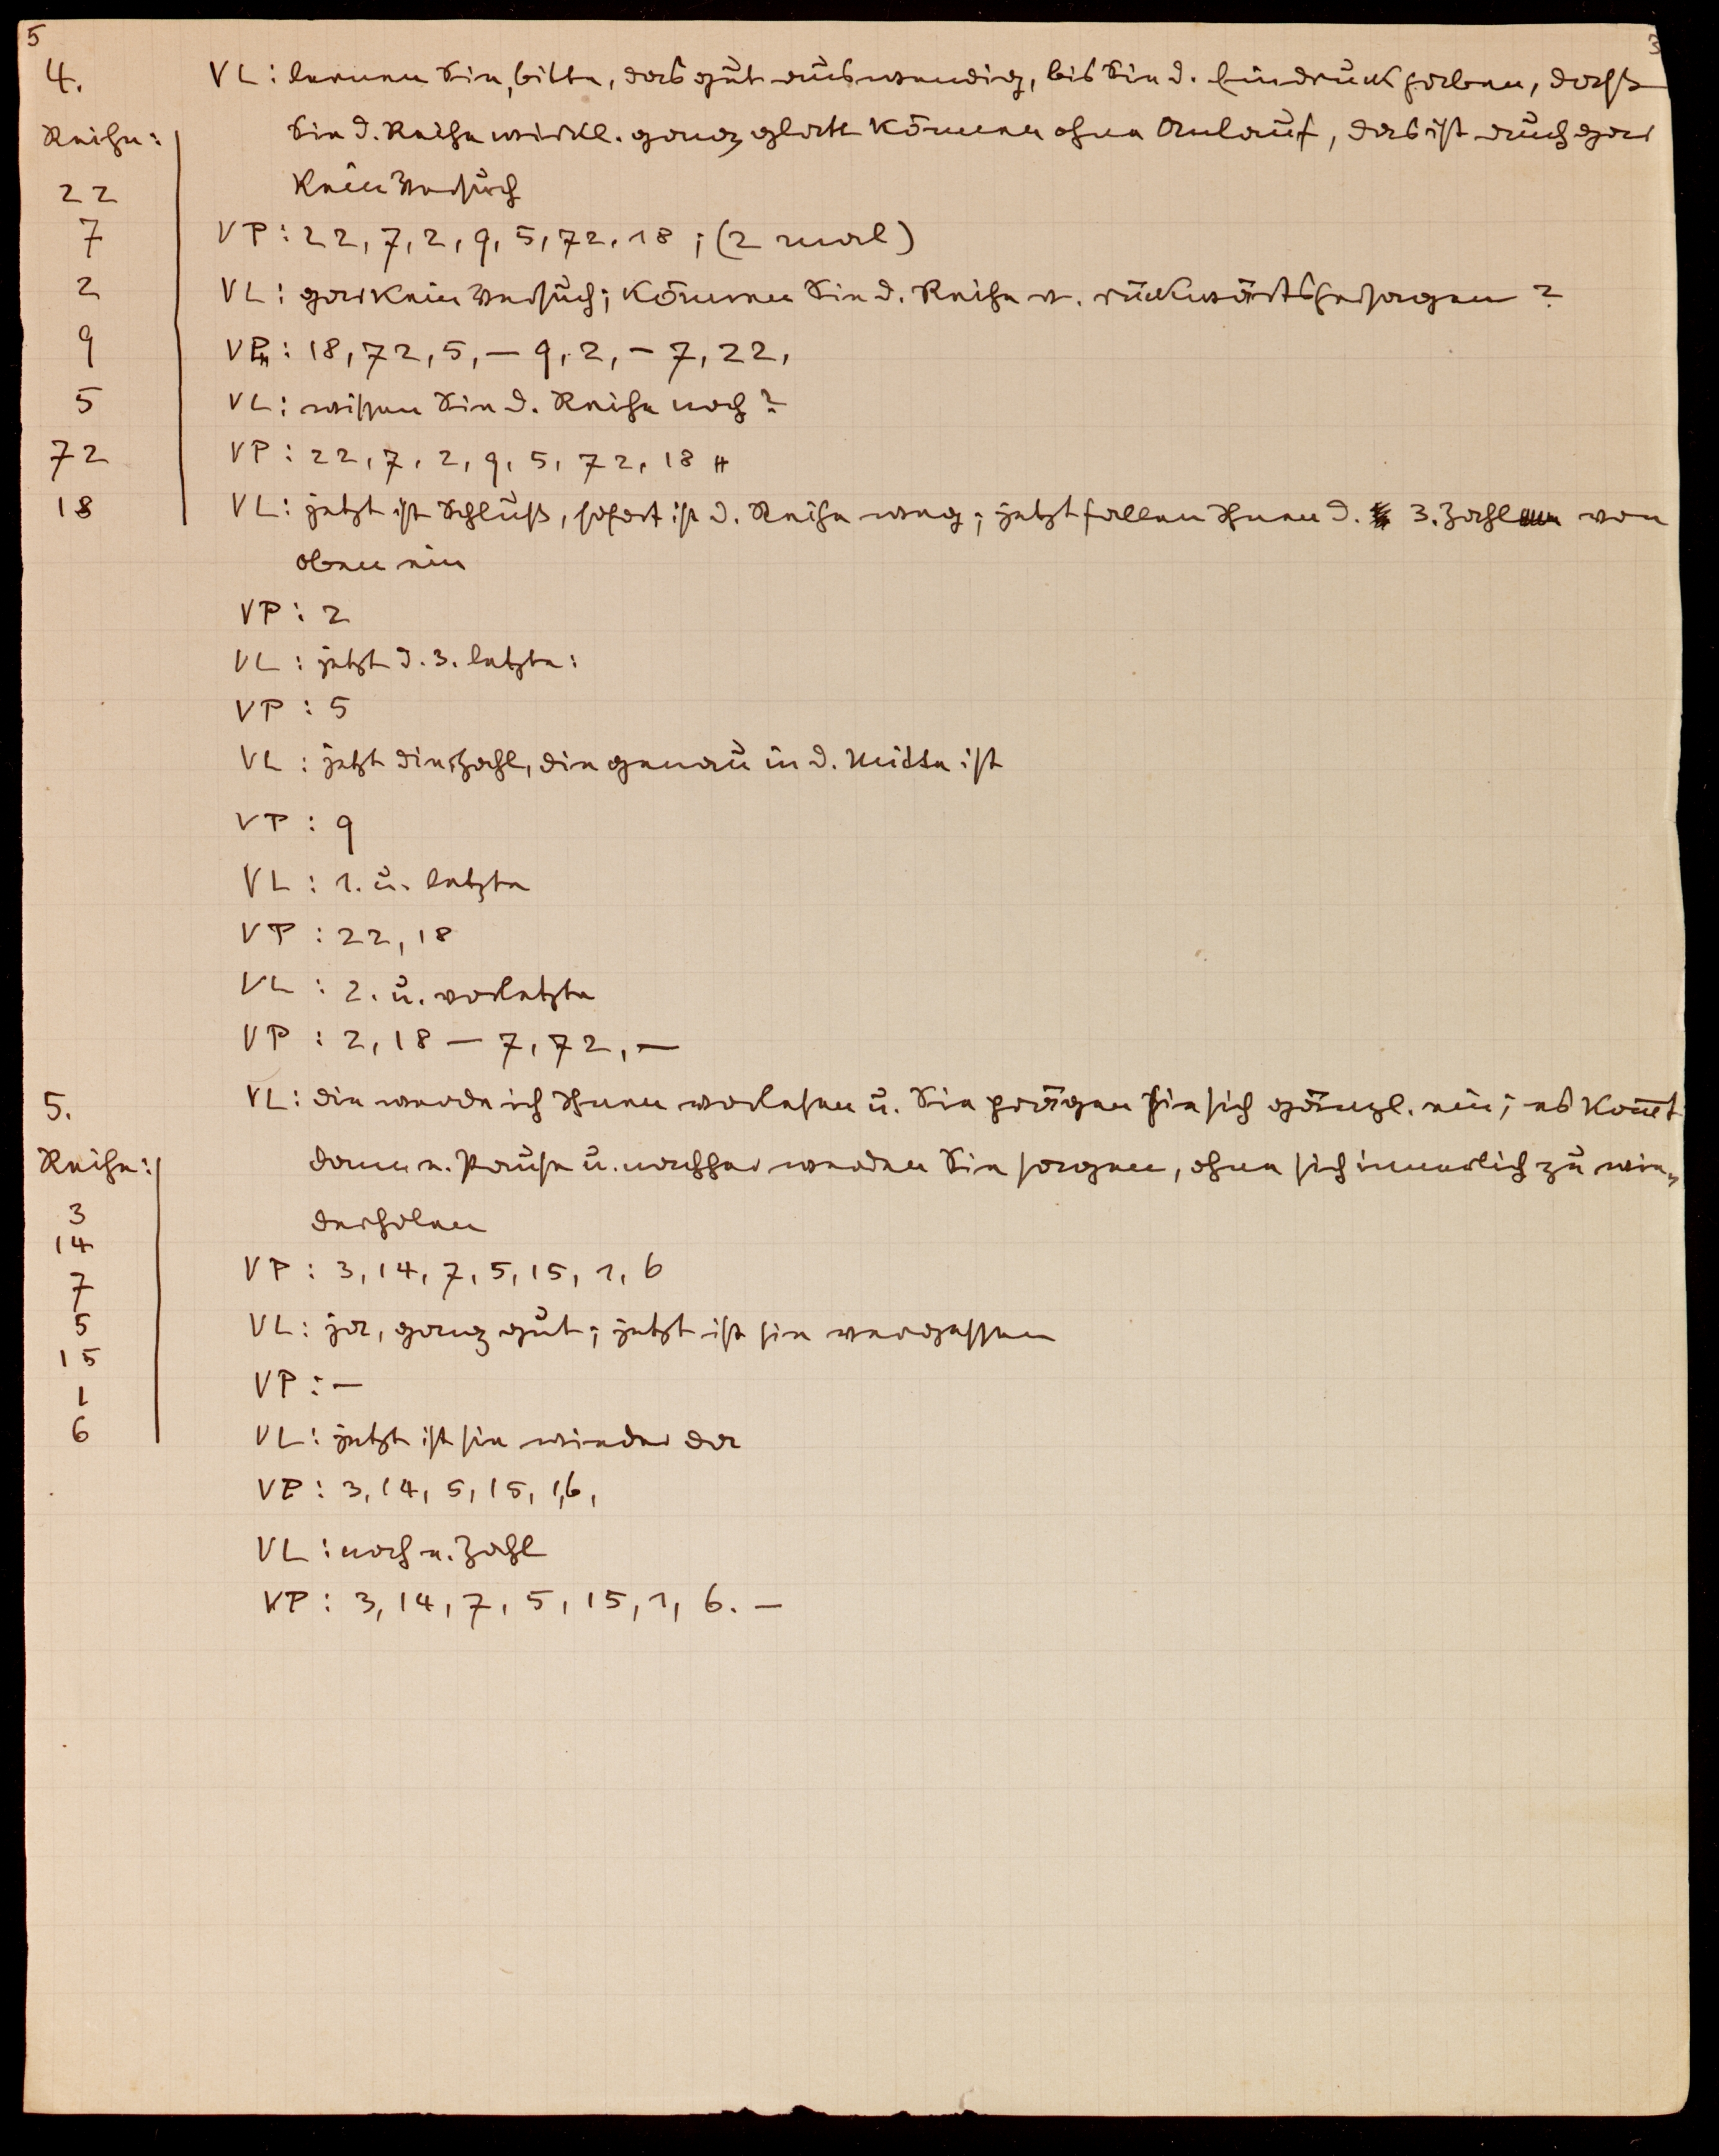 5
3
4.
VL: lernen Sie, bitte, das gut auswendig, bis Sie d. Eindruck haben, dass
Reihe:
Sie d. Reihe wirkl. ganz glatt können ohne Anlauf, das ist auch gar
kein Versuch
22
7
VP: 22, 7, 2, 9, 5, 72, 18; (2 mal)
2
VL: gar kein Versuch; können Sie d. Reihe v. rückwärts hersagen?
9
VP: 18, 72, 5, – 9, 2, – 7, 22,
5
VL: wissen Sie d. Reihe noch?
72
VP: 22, 7, 2, 9, 5, 72, 18
18
VL: jetzt ist Schluß, sofort ist d. Reihe weg; jetzt fallen Ihnen d. 3. Zahl von
oben ein
VP: 2
VL: jetzt d. 3. letzte:
VP: 5
VL: jetzt die Zahl, die genau in d. Mitte ist
VP: 9
VL: 1. u. letzte
VP: 22, 18
VL: 2. u. vorletzte
VP: 2, 18 – 7, 72, –
5.
VL: die werde ich Ihnen vorlesen u. Sie prägen sie sich gänzl. ein; es kom̅t
Reihe:
dann e. Pause u. nachher werden Sie sagen, ohne sich innerlich zu wie-
derholen
3
14
7
5
15
1
6
VP: 3, 14, 7, 5, 15, 1, 6
VL: ja, ganz gut; jetzt ist sie vergessen
VP: –
VL: jetzt ist sie wieder da
VP: 3, 14, 5, 15, 1, 6,
VL: noch e. Zahl
VP: 3, 14, 7, 5, 15, 1, 6. –